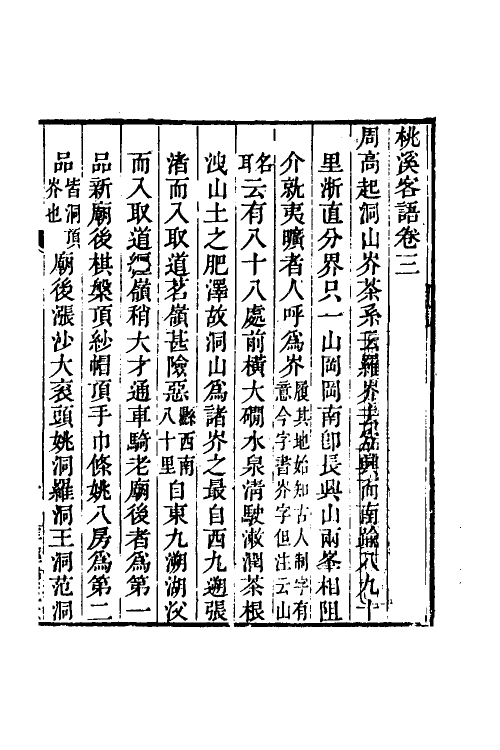 桃溪客語卷三
周高起洞山岕茶系云羅岕去宜興而南踰八九十
里浙直分界只一山岡岡南卽長興山兩峯相阻
介就夷曠者人呼爲岕履其地始知古人制字有意今字書岕字但注云山
名耳云有八十八處前橫大磵水泉淸駛潄潤茶根
洩山土之肥澤故洞山爲諸岕之最自西九遡張
渚而入取道茗嶺甚險惡縣西南八十里自東九溯湖㳇
而入取道嶺稍大才通車騎老廟後者爲第一
品新廟後棋盤頂紗帽頂手巾條姚八房爲第二
品皆洞頂岕也廟後漲沙大袠頭姚洞羅洞王洞范洞